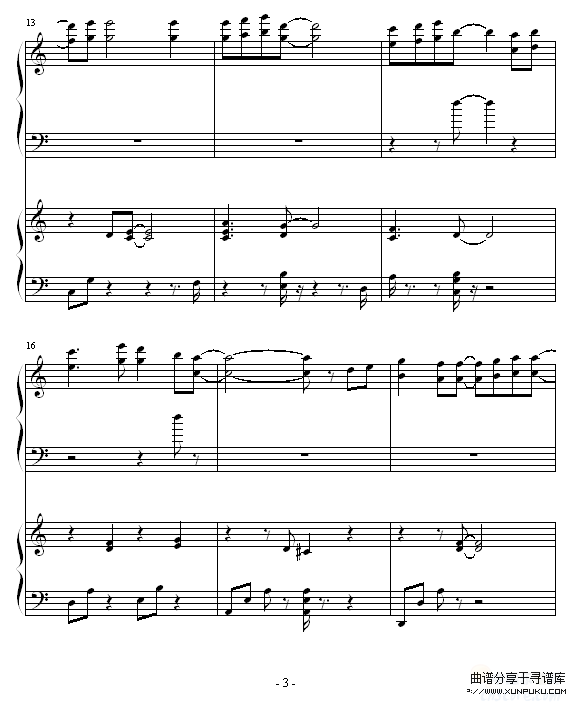 13
16
- 3 -
曲谱分享于寻谱库
WWW.XUNPUKU.COM